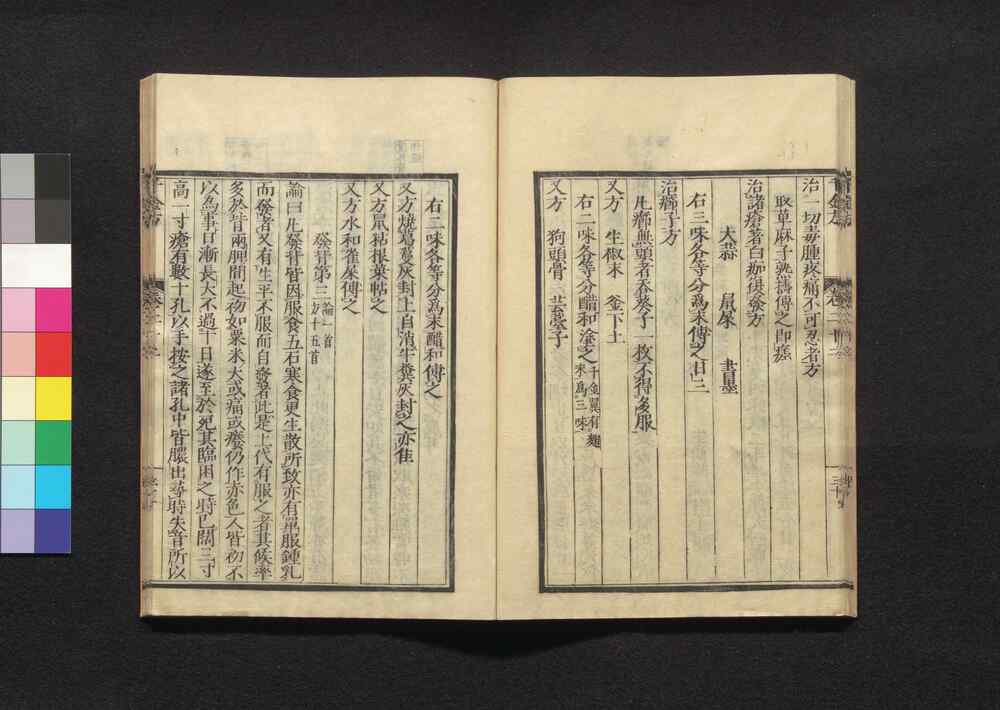 治一切毒腫疼痛不可忍者方
取萆麻子熟擣傅之即瘥
治諸瘡著白痂復發方
大蒜　鼠屎　書墨
右三味各等分爲末傅之日三
治癤子方
凡癤無頭者吞葵子一枚不得多服
又方　生椒末　釜下土
右二味各等分醋和塗之千金翼有麵
末爲三味
又方　狗頭骨　芸薹子
右二味各等分爲末醋和傅之
又方燒葛蔓灰封上自消牛糞灰封之亦佳
又方鼠粘根葉帖之
又方水和雀屎傅之
發背第三論一首
方十五首
論曰凡發背皆因服食五石寒食更生散所致亦有單服鍾乳
而發者又有生平不服而自發者此是上代有服之者其候率
多於背兩胛間起初如粟米大或痛或癢仍作赤色人皆初不
以爲事日漸長大不過十日遂至於死其臨困之時已闊三寸
高一寸瘡有數十孔以手按之諸孔中皆膿出尋時失音所以